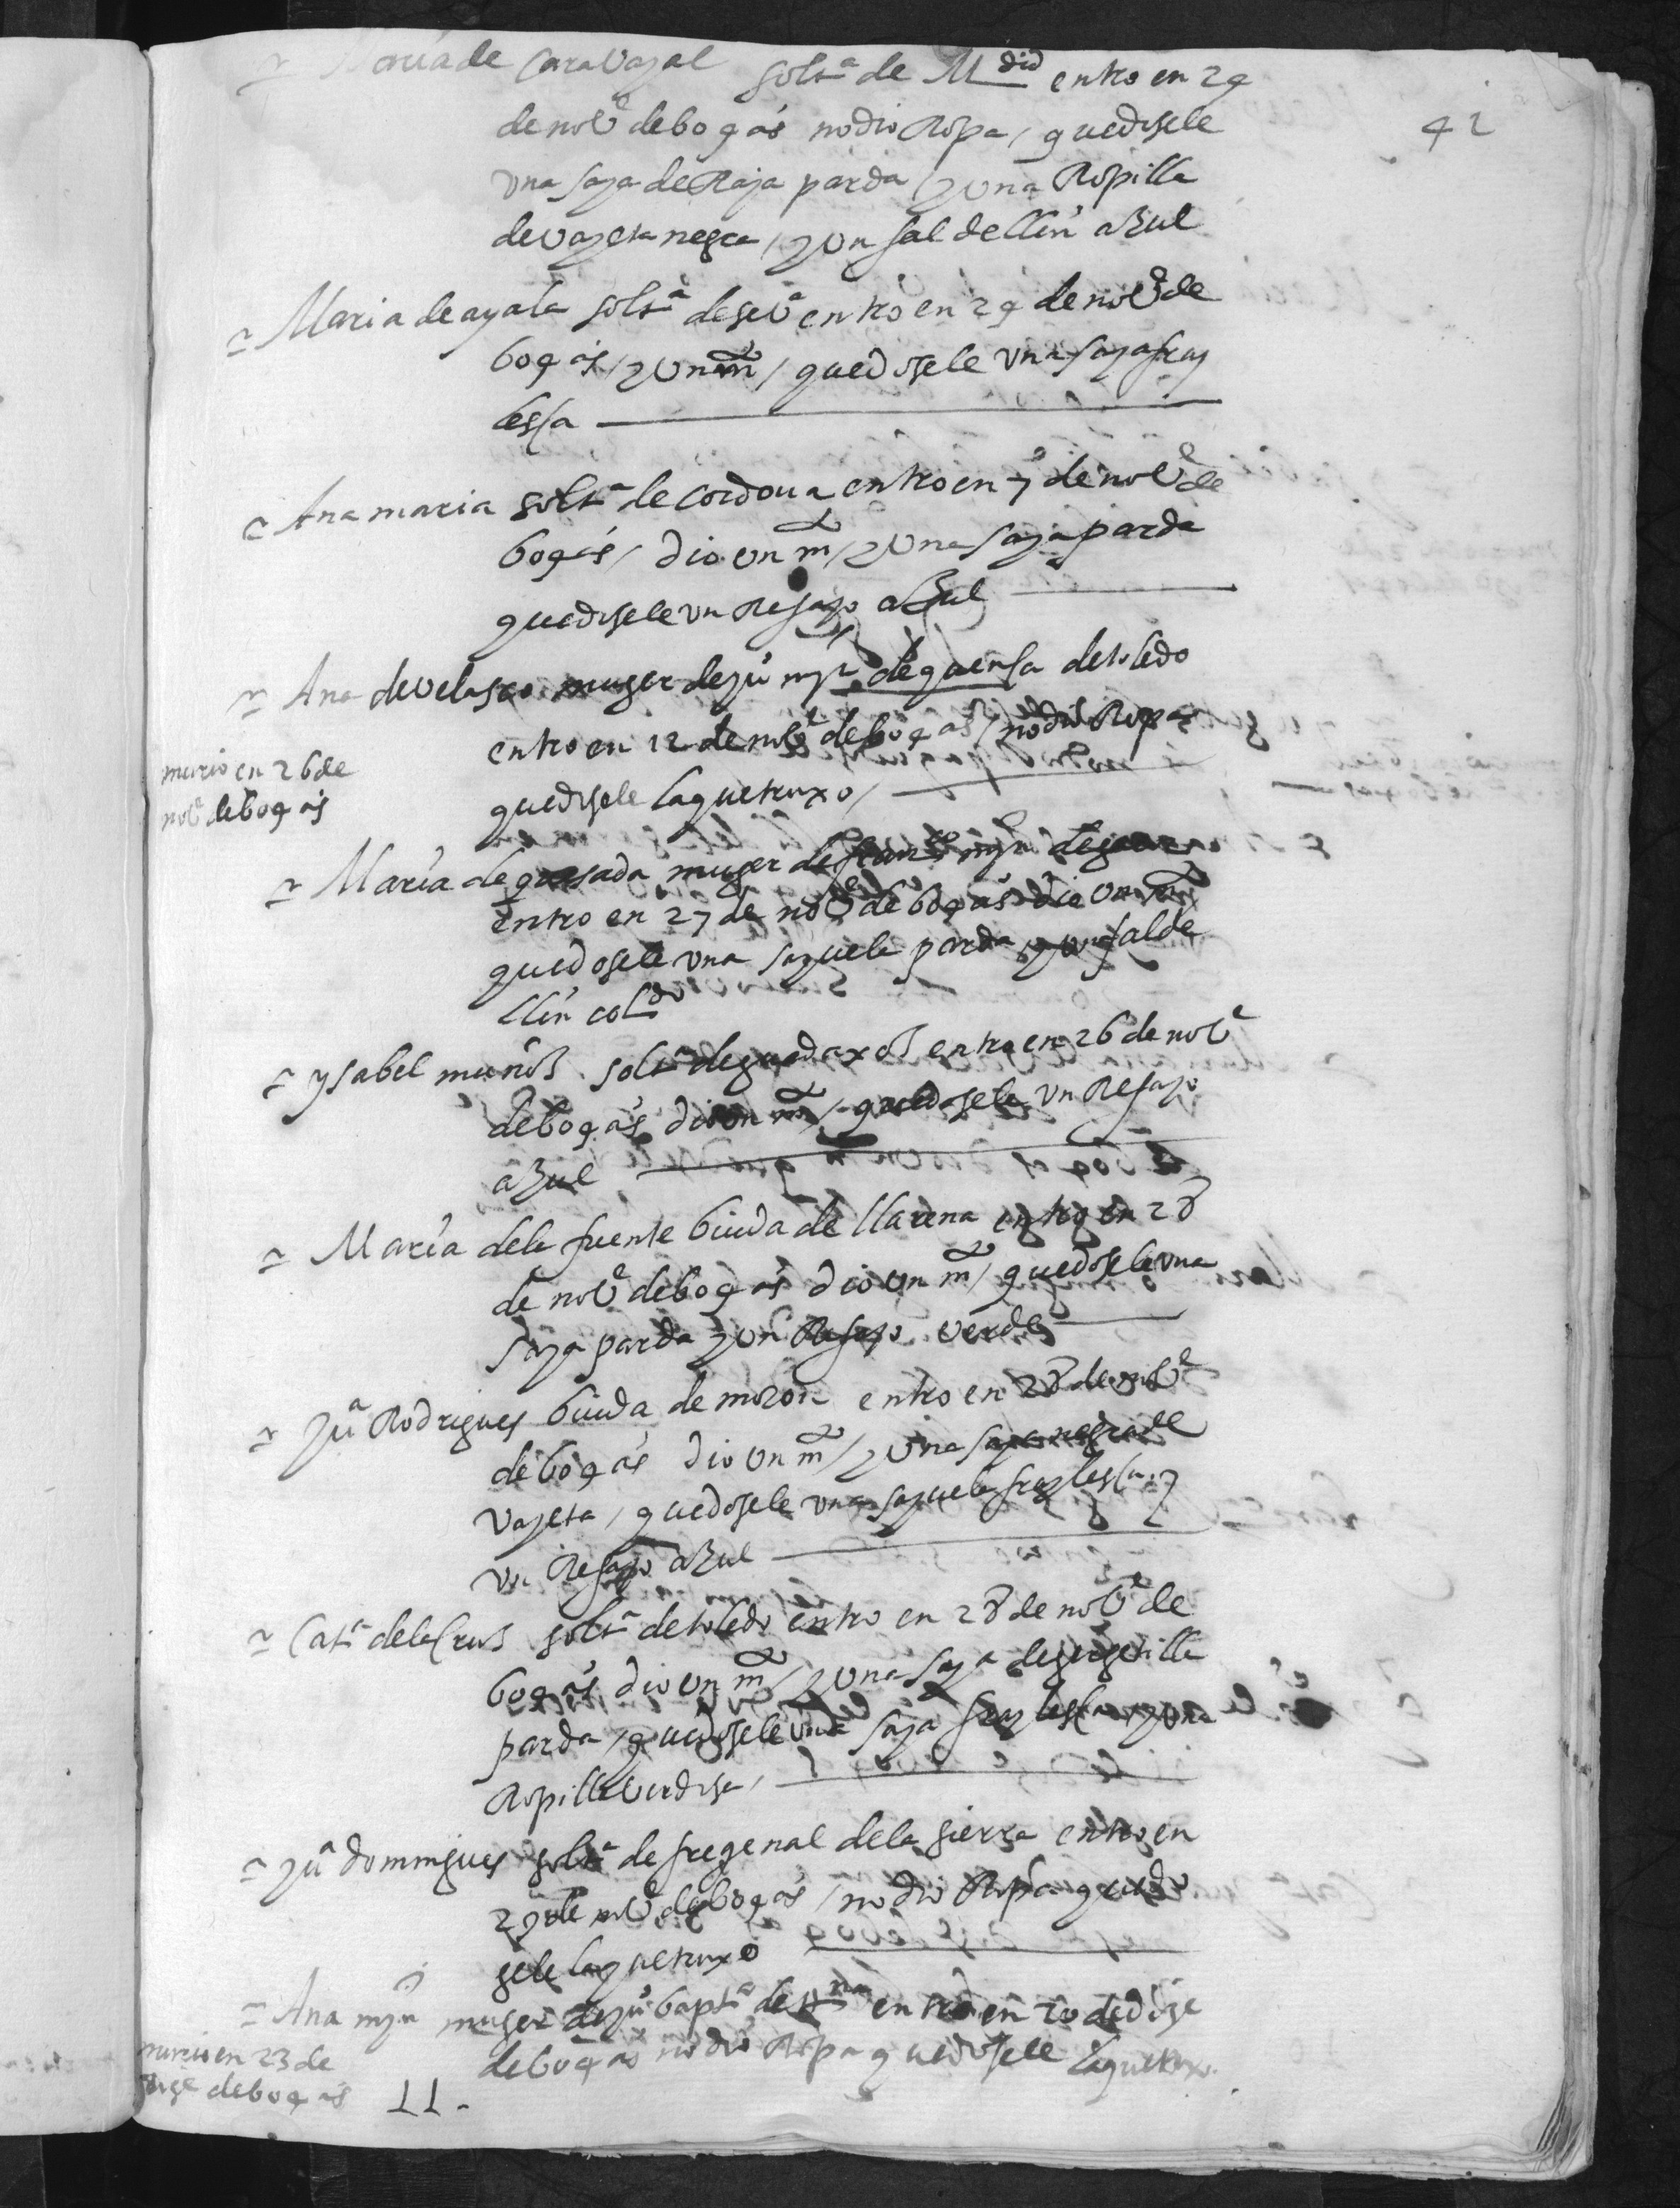 Maria de Caravajal solt.ª de M.did entro en 24
42
de nov.e de 604 as no dio Ropa / quedosele
una saya de Raja parda / y una Ropilla
de vayeta negra / y un faldellin aZul
Maria de ayala solt.ª de sev.ª entro en 24 de nov.e de
604 as / y un m.º / quedosele una saya fray
lesca
Ana maria solt.ª de cordoua entro en 7 de nov.e de
604 as / dio un m.º / y una saya parda
quedosele un Refajo aZul
Ana de velasco muger de ju.º mjn de quensa de toledo
entro en 12 de nov.e de 604 as / no dio Ropa
quedosele la que truxo /
murio en 26 de
nov.e de 604 as
Maria de quesada muger de fran.co mjn de
entro en 27 de nov.e de 604 as dio un m.º
quedosele una sayuela parda y un falde
llin col.do
ysabel muñoZ solt.ª de entro en 26 de nov.e
de 604 as dio un m.º / quedosele un Refajo
aZul
Maria dela fuente biuda de llarena entro en 28
de nov.e de 604 as dio un m.º / quedosele una
saya parda y un Refajo verde
Ju.ª Rodrigues biuda de moron entro en 28 de nov.e
de 604 as dio un m.º / y una saya negra de
vayeta / quedosele una sayuela fraylesca y
un Refajo aZul
Cat.ª dela Crus solt.ª de toledo entro en 28 de nov.e de
604 as dio un m.º / y una saya de gergetilla
parda / quedosele una saya fraylesca y una
Ropilla verdosa /
Ju.ª domingues solt.ª de fregenal dela sierra entro en
29 de nov.e de 604 as / no dio Ropa quedo
sele la que truxo
Ana mjn muger de ju.º bapt.ª de entro en 20 de dize
de 604 as no dio Ropa quedosele la que truxo
murio en 23 de
dize de 604 as
11 -